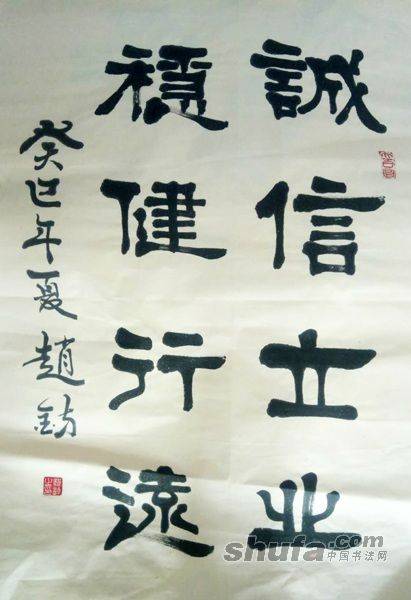 誠信立业
穩健行遠
癸巳年夏趙鈁
shufa.com
中国书法网